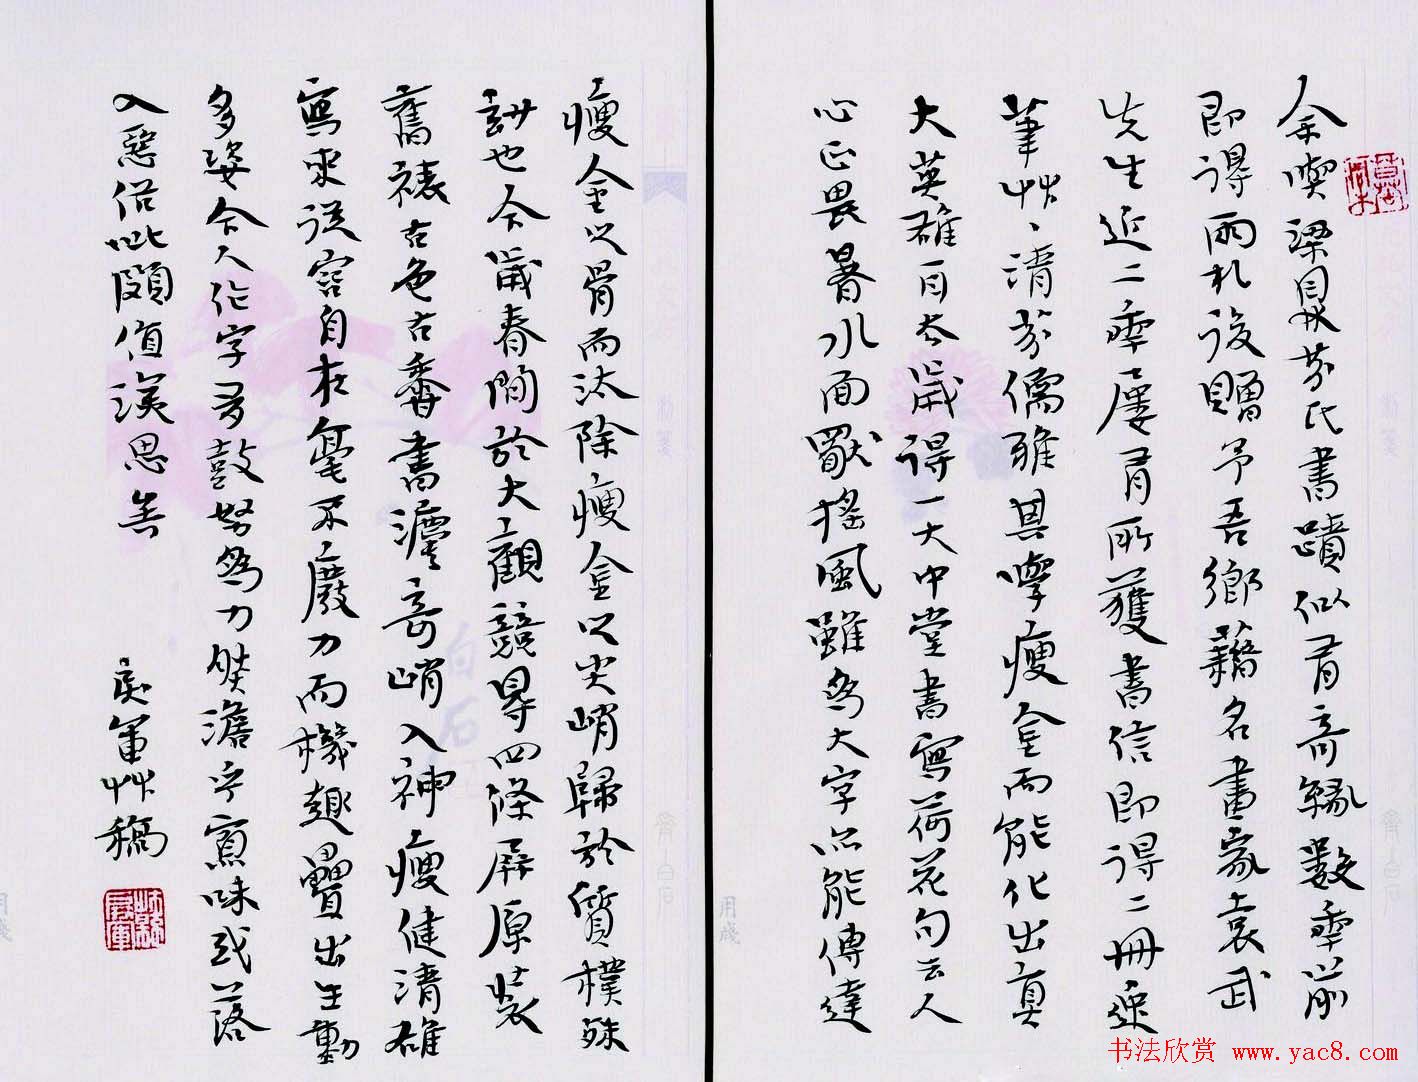 余喫梁鼎芬氏書蹟似有奇緣數年前
即得兩札後贈予吾鄉籍名畫家袁武
先生近二年屢有所獲書信即得二冊
筆艸〻清芬儒雅具學瘦金而能化出真
大英雄百 歲得一大中堂書寫荷花句云人
心正畏暑水面獸搖風雖為大字亦能傳達
瘦金以骨而汰除瘦金以尖峭歸於質樸殊
訣也今歲春間於大觀競得四條屏原裝
舊裱古色古香書灋奇峭入神瘦健清雄
寫來從容自在毫不廢力而機趣疊出生動
多姿今人作字多鼓努為力然澹宁寡味或落
入惡俗此頗值深思矣
艸稿
書法欣赏 www.yac8.com
白石
用箋
齊白石